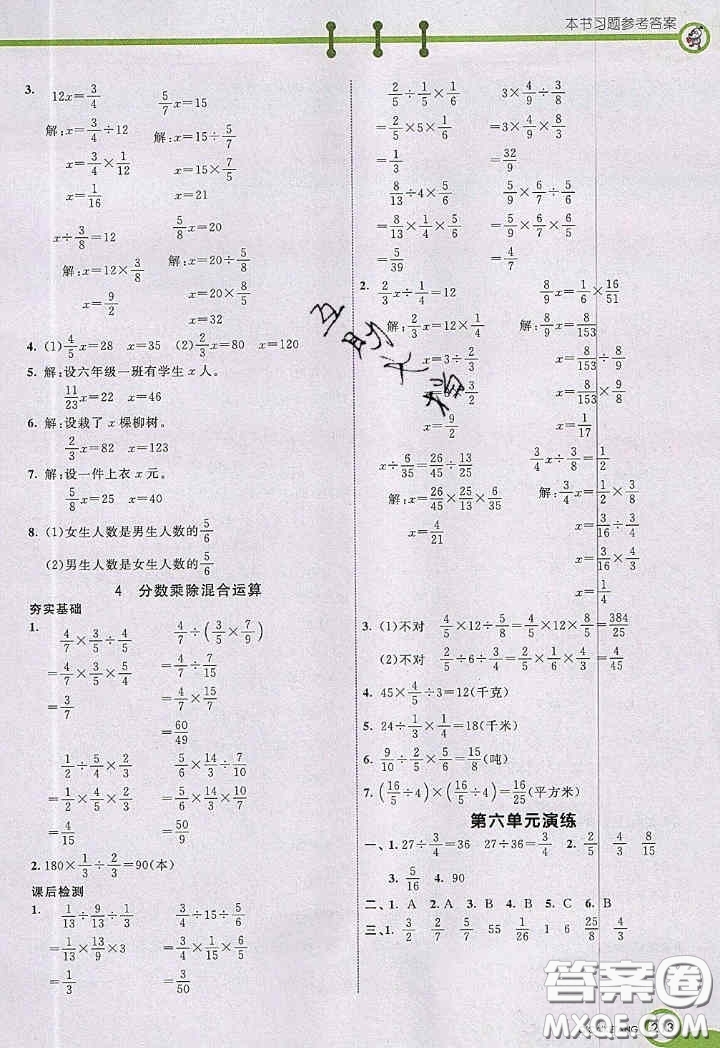 本书习题参考答案
3. 12x=3/4 5/7x=15
解:x=3/4÷12 解:x=15÷5/7
x=3/4×1/12 x=15×7/5
x=1/16 x=21
x÷3/8=12 5/8x=20
解:x=12×3/8 解:x=20÷5/8
x=9/2 x=20×8/5
x=32
4. (1)4/5x=28 x=35 (2)2/3x=80 x=120
5. 解:设六年级一班有学生x人。
11/23x=22 x=46
6. 解:设栽了x棵柳树。
2/3x=82 x=123
7. 解:设一件上衣x元。
5/8x=25 x=40
8. (1)女生人数是男生人数的5/6
(2)男生人数是女生人数的5/6
4 分数乘除混合运算
夯实基础
1. 4/7×3/5÷4/5 4/7÷(3/5×7/9)
=4/7×3/5×5/4 =4/7÷7/15
=3/7 =4/7×15/7
=60/49
1/2÷5/4×2/3 5/7×5/6÷7/10
=1/2×4/5×2/3 =5/7×5/6×10/7
=4/15 =50/9
2. 180×1/3÷2/3=90(本)
课后检测
1. 1/13÷9/13÷1/3 3/4÷15÷5/6
=1/13×13/9×3 =3/4×1/15×6/5
=1/3 =3/50
2/5÷1/5×1/6 3×4/3÷3/8
=2/5×5×1/6 =3×4/3×8/3
=1/3 =32/9
8/13÷4×5/6 5/9×6/7÷5/6
=8/13×1/4×5/6 =5/9×6/7×6/5
=5/39 =4/7
2. 2/3x÷1/4=12 8/9x=1/6×16/51
解:2/3x=12×1/4 解:8/9x=8/153
x=3÷2/3 x=8/153÷8/9
x=3/2 x=8/153×9/8
x=9/2 x=1/17
x÷6/35=26/45÷13/25 3/4x÷3/8=1/2
解:x=26/45×25/13×6/35 解:3/4x=1/2×3/8
x=4/21 x=3/16÷3/4
x=3/16×4/3
x=1/4
3. (1)不对 4/5×12÷5/8=4/5×12×8/5=384/25
(2)不对 2/5÷6÷3/4=2/5×1/6×4/3=4/45
4. 45×4/5÷3=12(千克)
5. 24÷1/3×1/4=18(千米)
6. 9/10÷2/5×5/6=15/8(吨)
7. (16/5÷4)×(16/5÷4)=16/25(平方米)
第六单元演练
一、1. 27÷3/4=36 27÷36=3/4 2. 2/5 3/4 8/15
3. 5/16 4. 90
二、1. A 2. A 3. A 4. B 5. C 6. B
三、1. 3/2 2/7 5/7 55 1/26 1 6 25/8 4/3
答案圈
MXQE.COM